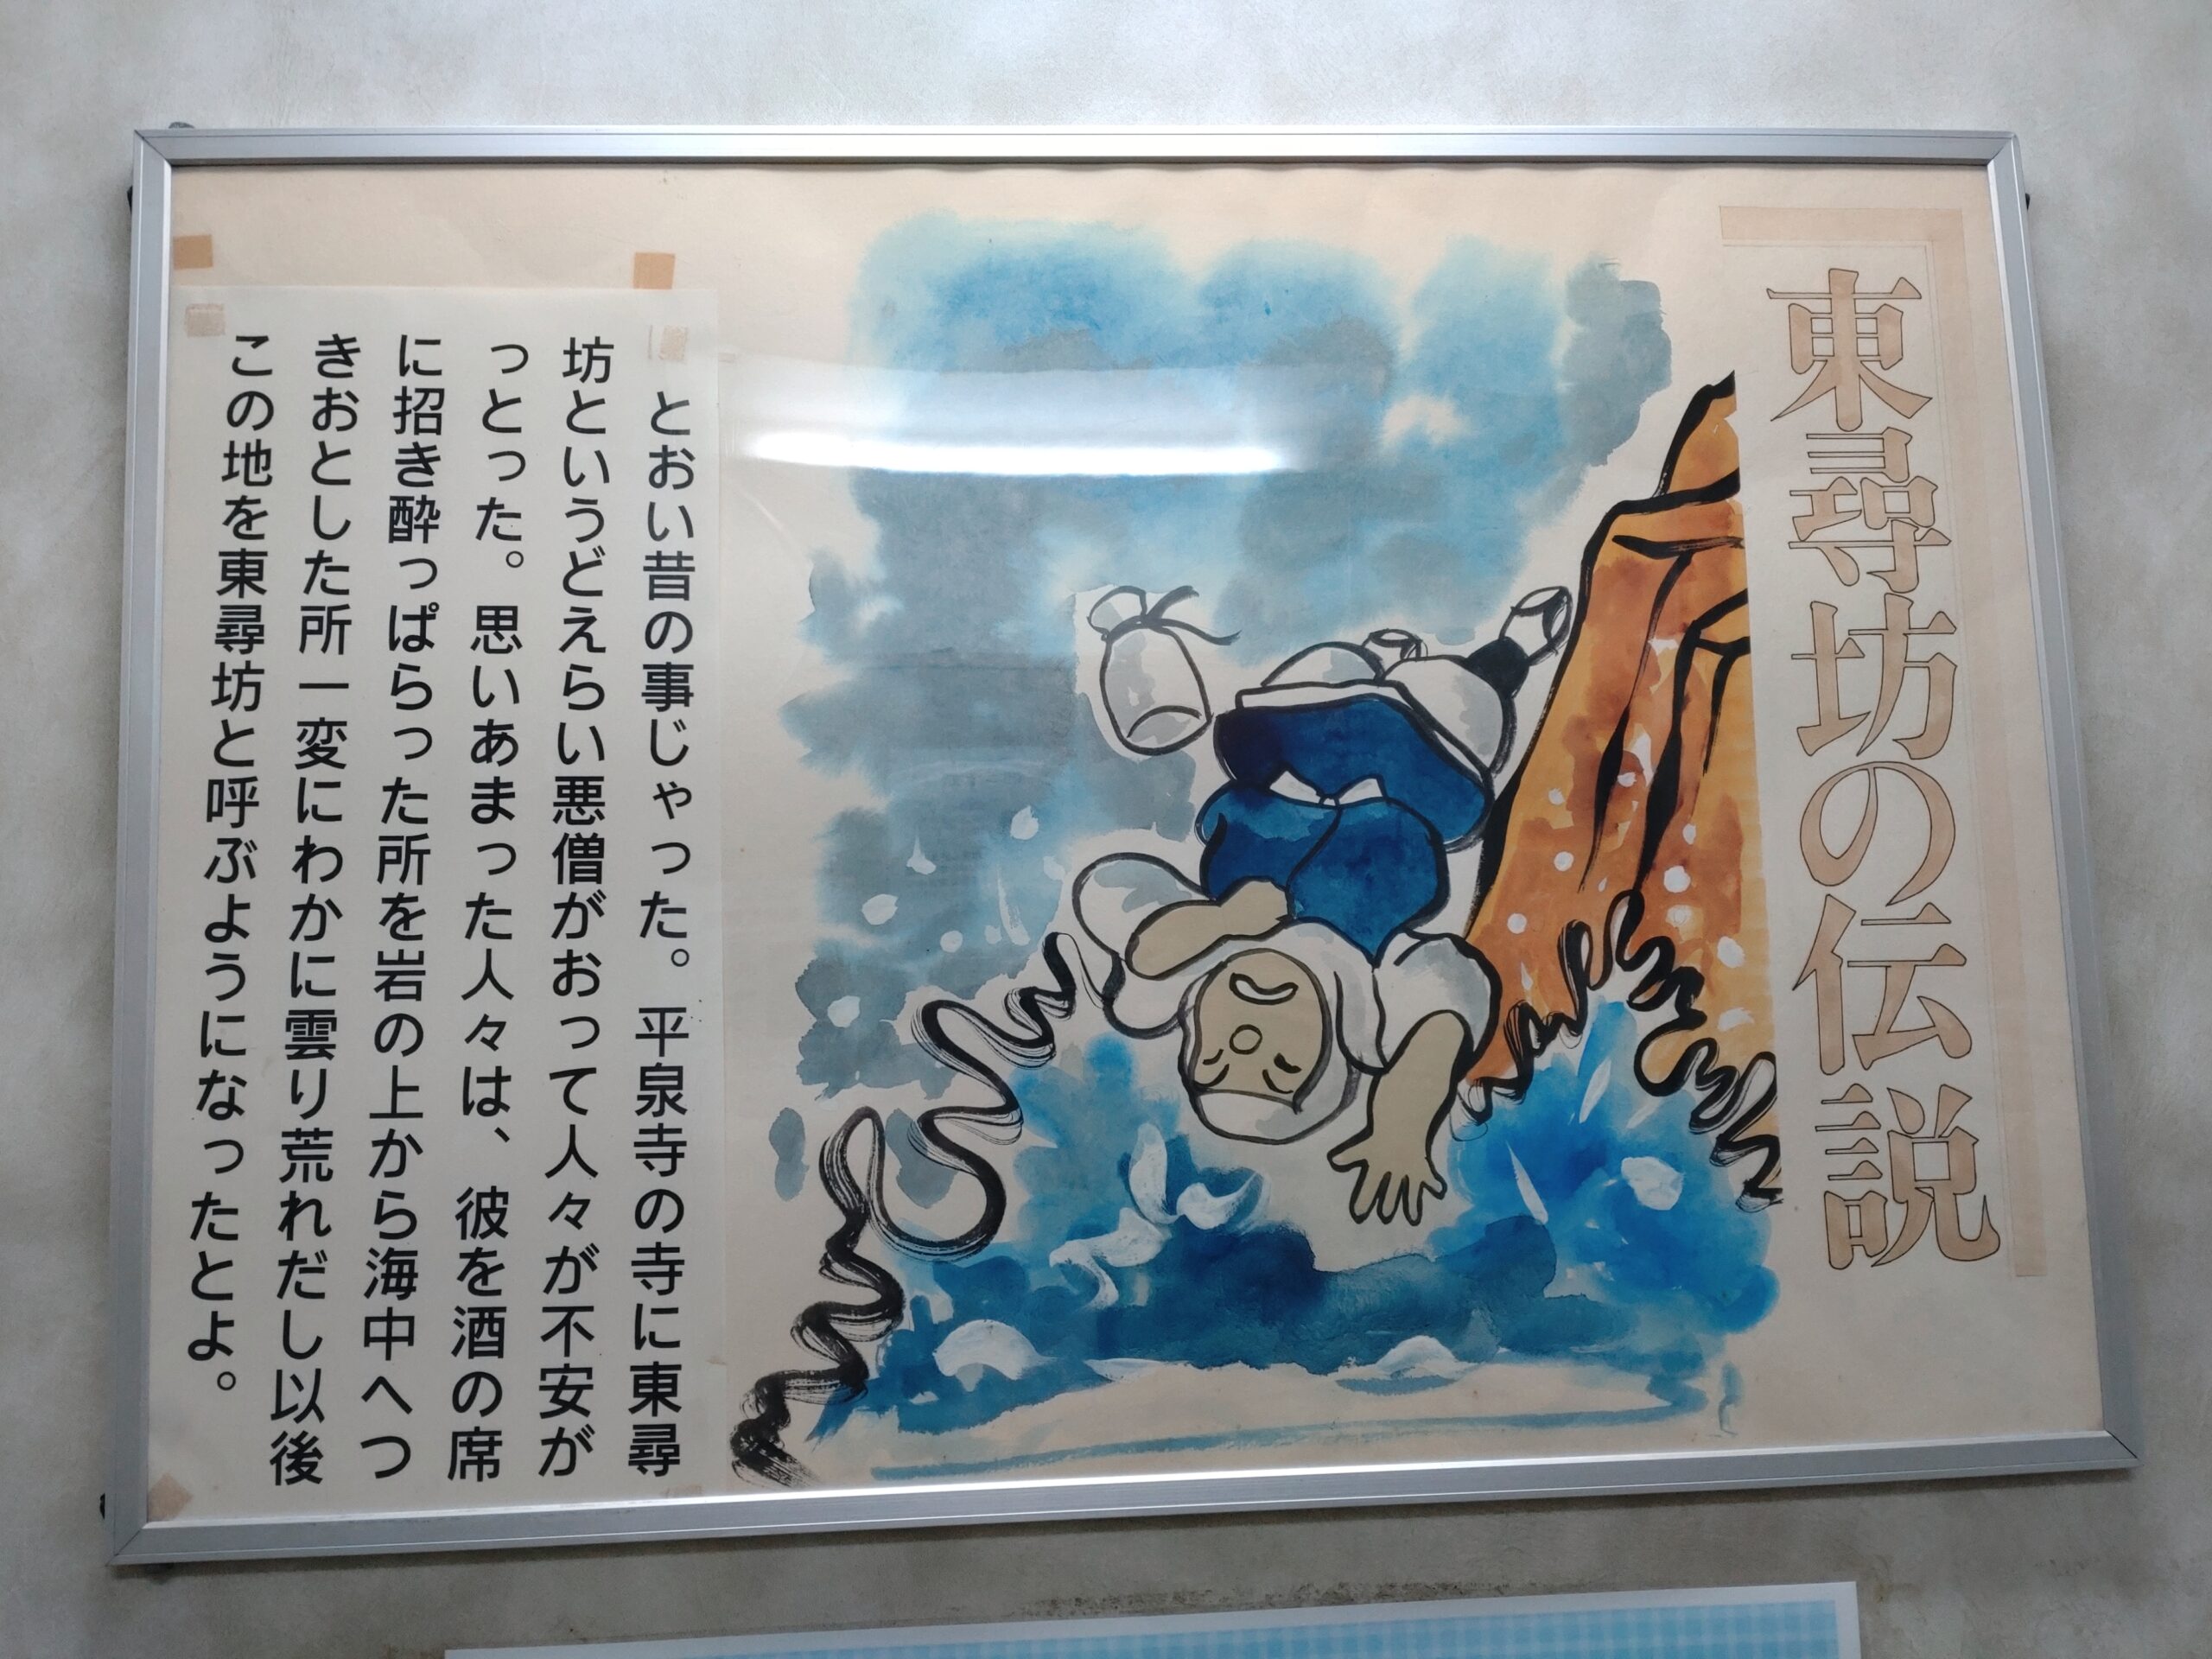 東尋坊の伝説
とおい昔の事じゃった。平泉寺の寺に東尋
坊というどえらい悪僧がおって人々が不安が
っとった。思いあまった人々は、彼を酒の席
に招き酔っぱらった所を岩の上から海中へつ
きおとした所一変にわかに雲り荒れだし以後
この地を東尋坊と呼ぶようになったとよ。